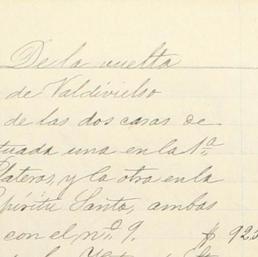 De la vuelta
de Valdivielso
de las dos casas de
tuada una en la 1ª
Plateros, y la otra en la
Espiritu Santo, ambas
con el nº 9. $ 923